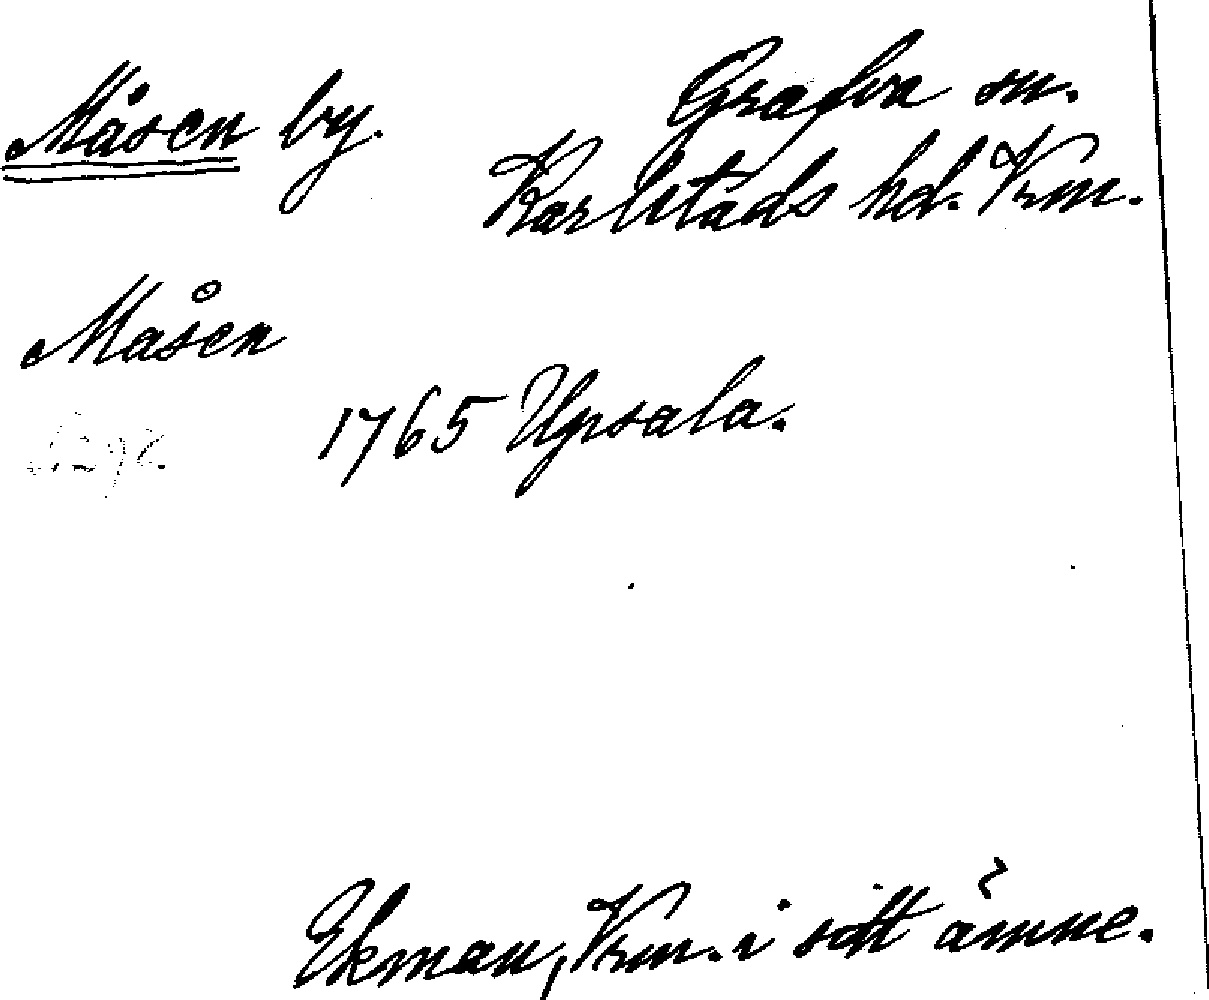 Måsen by.
Grafva sn.
Karlstads hd. Vrm.
Måsen
1765 Upsala.
Ekman, Vrm. i sitt ämne.